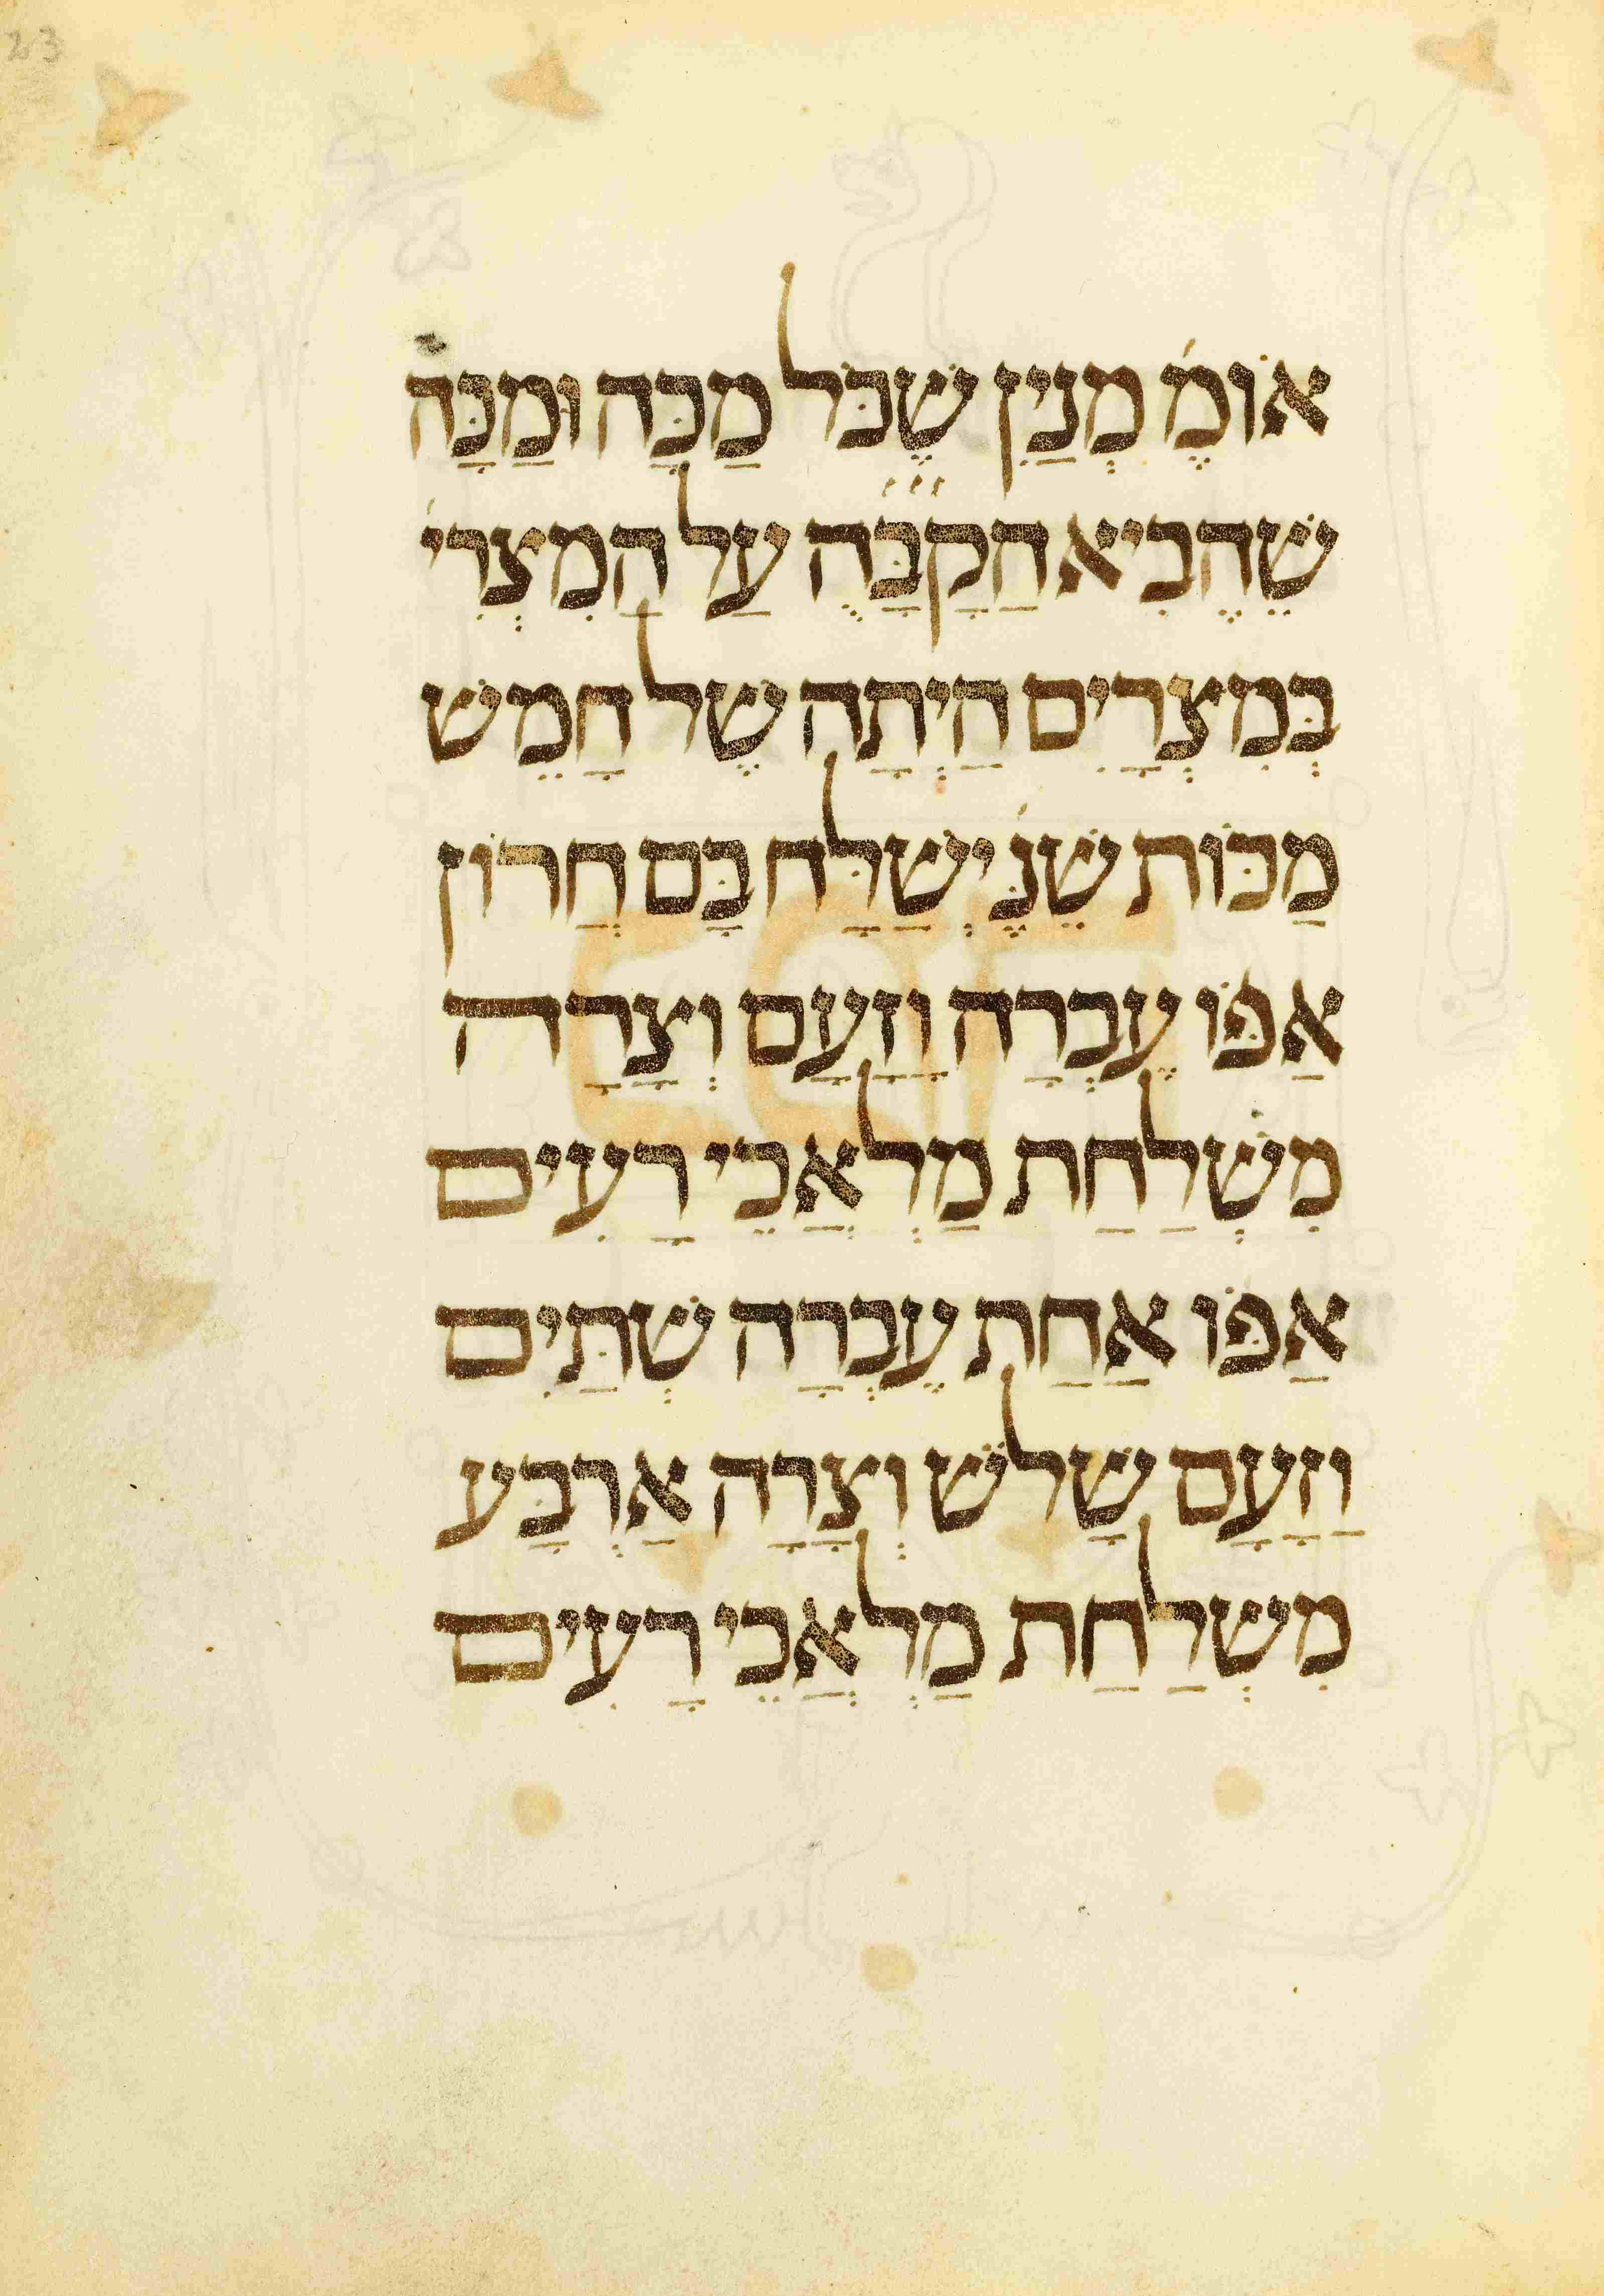 23
אוֹמֶ׳ מְנַיִן שֶׁכֹּל מַכָּה וּמַכָּה
שֶׁהֵבִיא הַקָבָּ׳ה עַל הַמִצְרִי׳
בְּמִצְרַיִם הָיְתָה שֶׁל חָמֵשׁ
מַכּוֹת שֶׁנֶּ׳ יְשַׁלַּח בָּם חֲרוֹן
אַפּוֹ עֶבְרָה וָזַעַם וְצָרָה
מִשְׁלַחַת מַלְאֲכֵי רָעִים
אַפּוֹ אַחַת עֶבְרָה שְׁתַּיִם
וָזַעַם שָׁלשׁ וְצָרָה אַרְבַּע
מִשְׁלַחַת מַלְאֲכֵי רָעִים